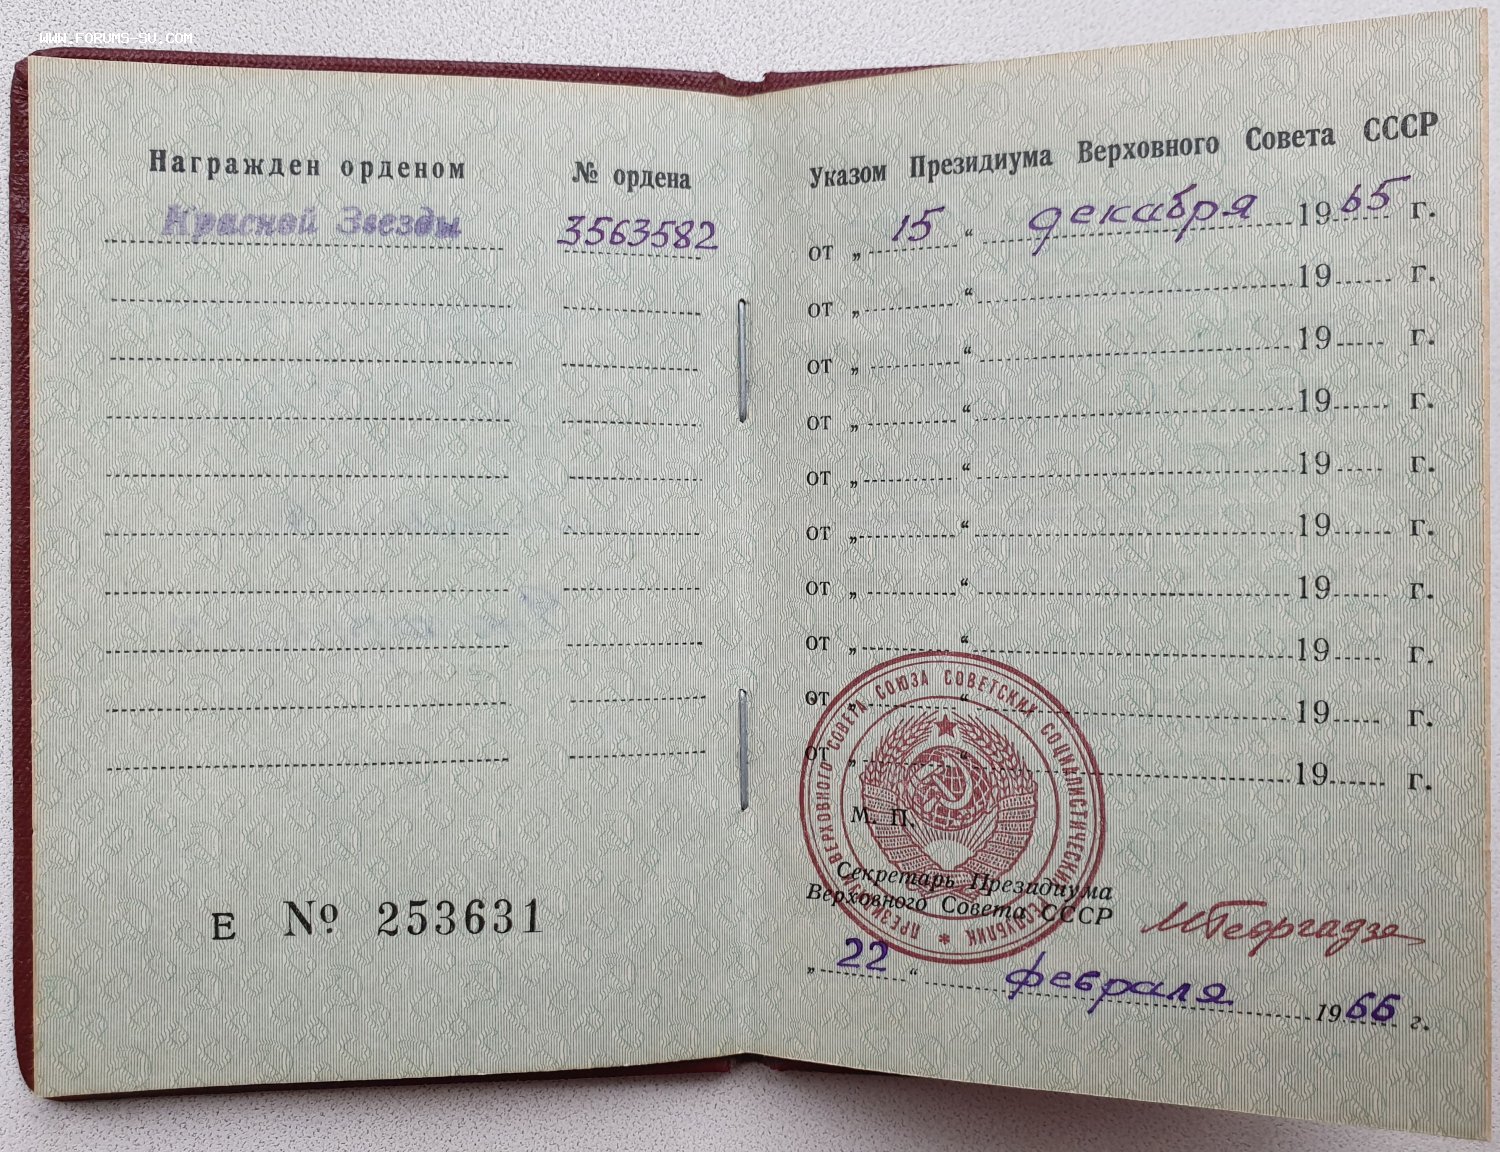 WWW.FORUMS-SU.COM
Награжден орденом
№ ордена
Красной Звезды
3563582
Е № 253631
Указом Президиума Верховного Совета СССР
от „ 15 “ декабря 1965 г.
от „ “ 19 г.
от „ “ 19 г.
от „ “ 19 г.
от „ “ 19 г.
от „ “ 19 г.
от „ “ 19 г.
от „ “ 19 г.
от „ “ 19 г.
от „ “ 19 г.
ПРЕЗИДИУМ ВЕРХОВНОГО СОВЕТА СОЮЗА СОВЕТСКИХ СОЦИАЛИСТИЧЕСКИХ РЕСПУБЛИК *
М. П.
Секретарь Президиума
Верховного Совета СССР
МГеоргадзе
„ 22 “ февраля 1966 г.